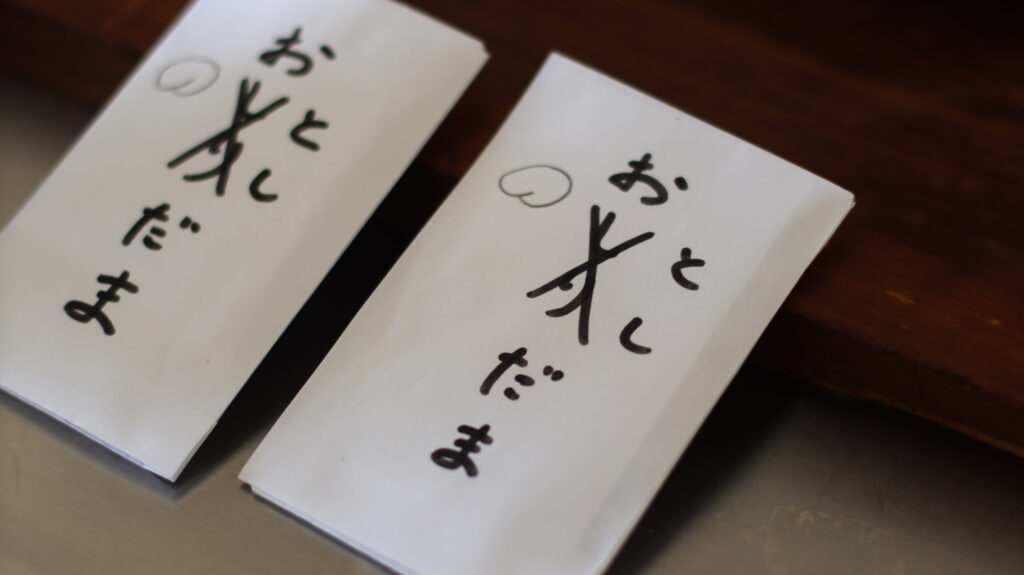 おとしだま
の
おとしだま
の